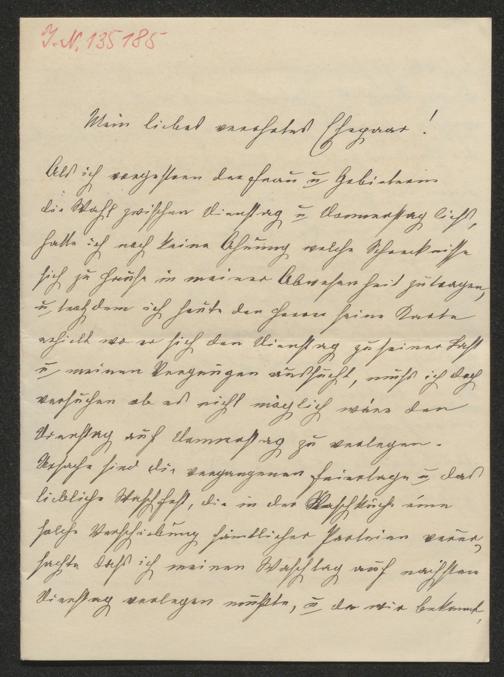 J.N. 135185
Mein liebes verehrtes Ehepaar!
Als ich vorgestern der Frau u Gebieterin
die Wahl zwischen Dienstag u Donnerstag ließ,
hatte ich noch keine Ahnung welche Schrecknisse
sich zu Hause in meiner Abwesenheit zutragen,
u trotzdem ich heute den Herrn seine Karte
erhielt wo er sich den Dienstag zu seiner Last
u meinen Vergnügen aussucht, muß ich doch
versuchen ob es nicht möglich wäre den
Dienstag auf Donnerstag zu verlegen.
Ursache sind die vergangenen Feiertage u das
liebliche Waschfest, die in der Waschküche eine
solche Verschiebung sämtlicher Parteien verur,
sachte daß ich meinen Waschtag auf nächsten
Dienstag verlegen mußte, u da wir bekannt,